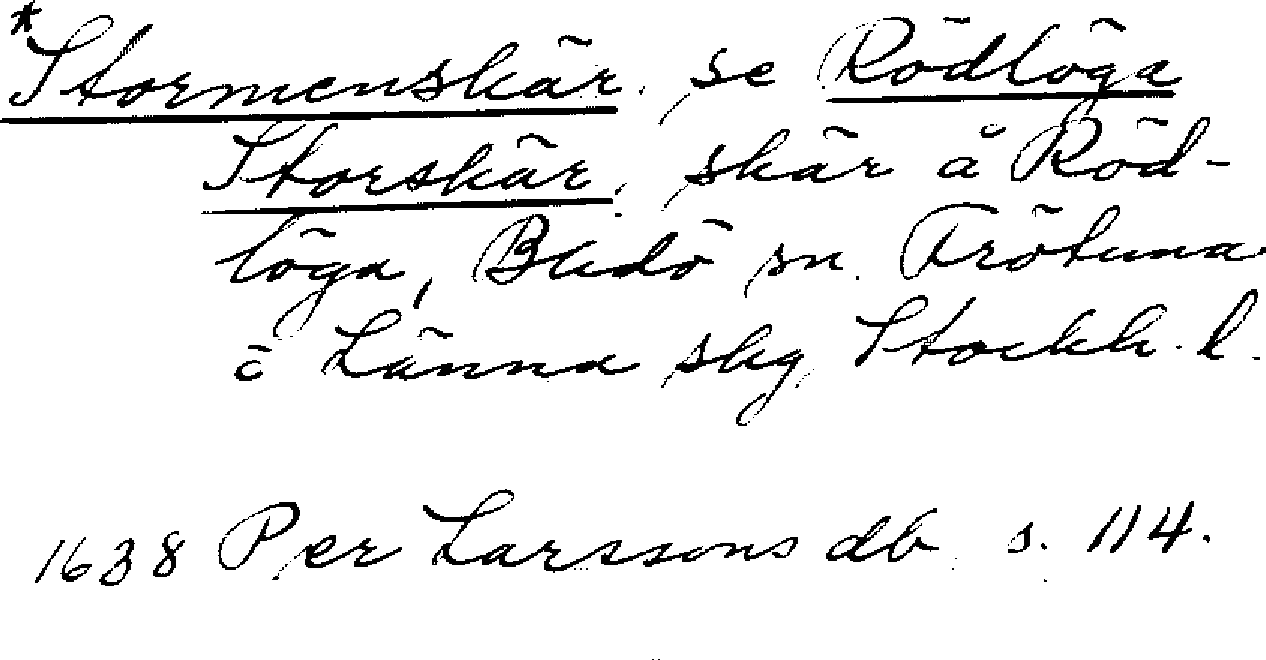 *Stormenskär, se Rödlöga
Storskär, skär å Röd-
löga, Blidö sn. Frötuna
o Länna skg, Stockh. l.
1638 Per Larssons db s. 114.